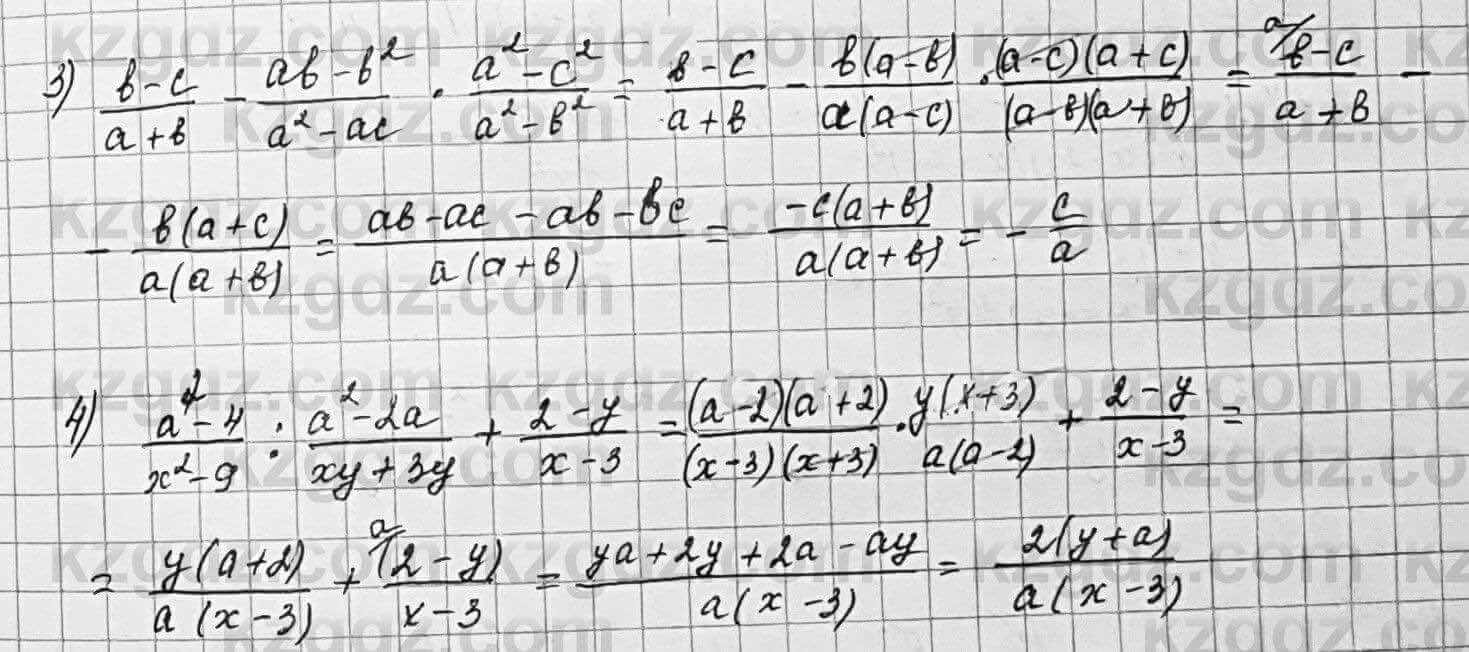 3) (b-c)/(a+b) - (ab-b²)/(a²-ac) · (a²-c²)/(a²-b²) = (b-c)/(a+b) - (b(a-b))/(a(a-c)) · ((a-c)(a+c))/((a-b)(a+b)) = ᵃ⁄(b-c)/(a+b) -
- (b(a+c))/(a(a+b)) = (ab-ac-ab-bc)/(a(a+b)) = (-c(a+b))/(a(a+b)) = - c/a
4) (a²-4)/(x²-9) : (a²-2a)/(xy+3y) + (2-y)/(x-3) = ((a-2)(a+2))/((x-3)(x+3)) · (y(x+3))/(a(a-2)) + (2-y)/(x-3) =
= (y(a+2))/(a(x-3)) + ᵃ⁄(2-y)/(x-3) = (ya+2y+2a-ay)/(a(x-3)) = (2(y+a))/(a(x-3))
kzgdz.com